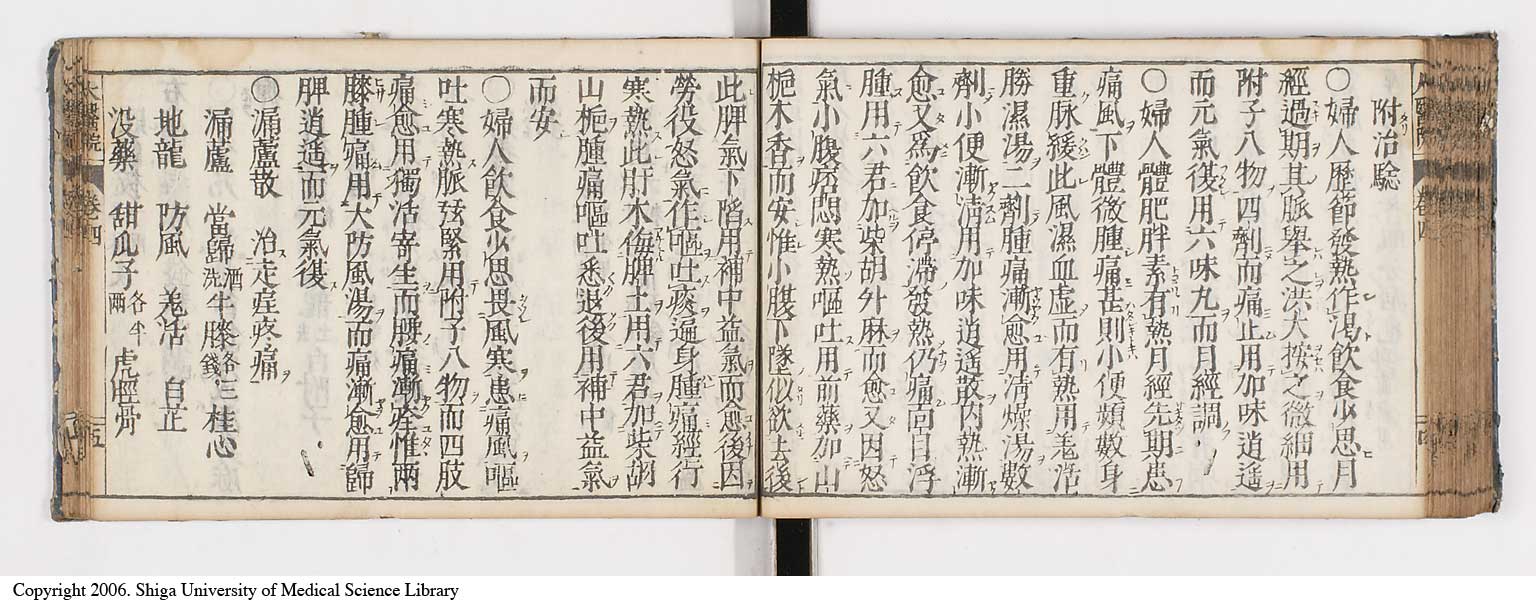 附治驗
○婦人歷節發熱作渴飲食少思月
經過期其脈舉之洪大按之微細用
附子八物四劑而痛止用加味逍遙
而元氣復用六味丸而月經調
○婦人體肥胖素有熱月經先期患
痛風下體微腫痛甚則小便頻數身
重脉緩此風濕血虛而有熱用羌活
勝濕湯二劑腫痛漸愈用清燥湯數
劑小便漸清用加味逍遙散內熱漸
愈又為飲食停滯發熱仍痛面目浮
腫用六君加柴胡升麻而愈又因怒
氣小腹痞悶寒熱嘔吐用前藥加山
梔木香而安惟小腹下墜似欲去後
此脾氣下陷用補中益氣而愈後因
勞役怒氣作嘔吐痰遍身腫痛經行
寒熱此肝木侮脾土用六君加柴胡
山梔腫痛嘔吐悉退後用補中益氣
而安
○婦人飲食少思畏風寒患痛風嘔
吐寒熱脈弦緊用附子八物而四肢
痛愈用獨活寄生而腰痛漸痊惟兩
膝腫痛用大防風湯而痛漸愈用歸
脾逍遙而元氣復
○漏蘆散　治走痓疼痛
漏蘆　當歸酒洗　牛膝各三錢　桂心
地龍　防風　羌活　白芷
没藥　甜瓜子各半兩　虎脛骨
卷四
十五
Copyright 2006. Shiga University of Medical Science Library